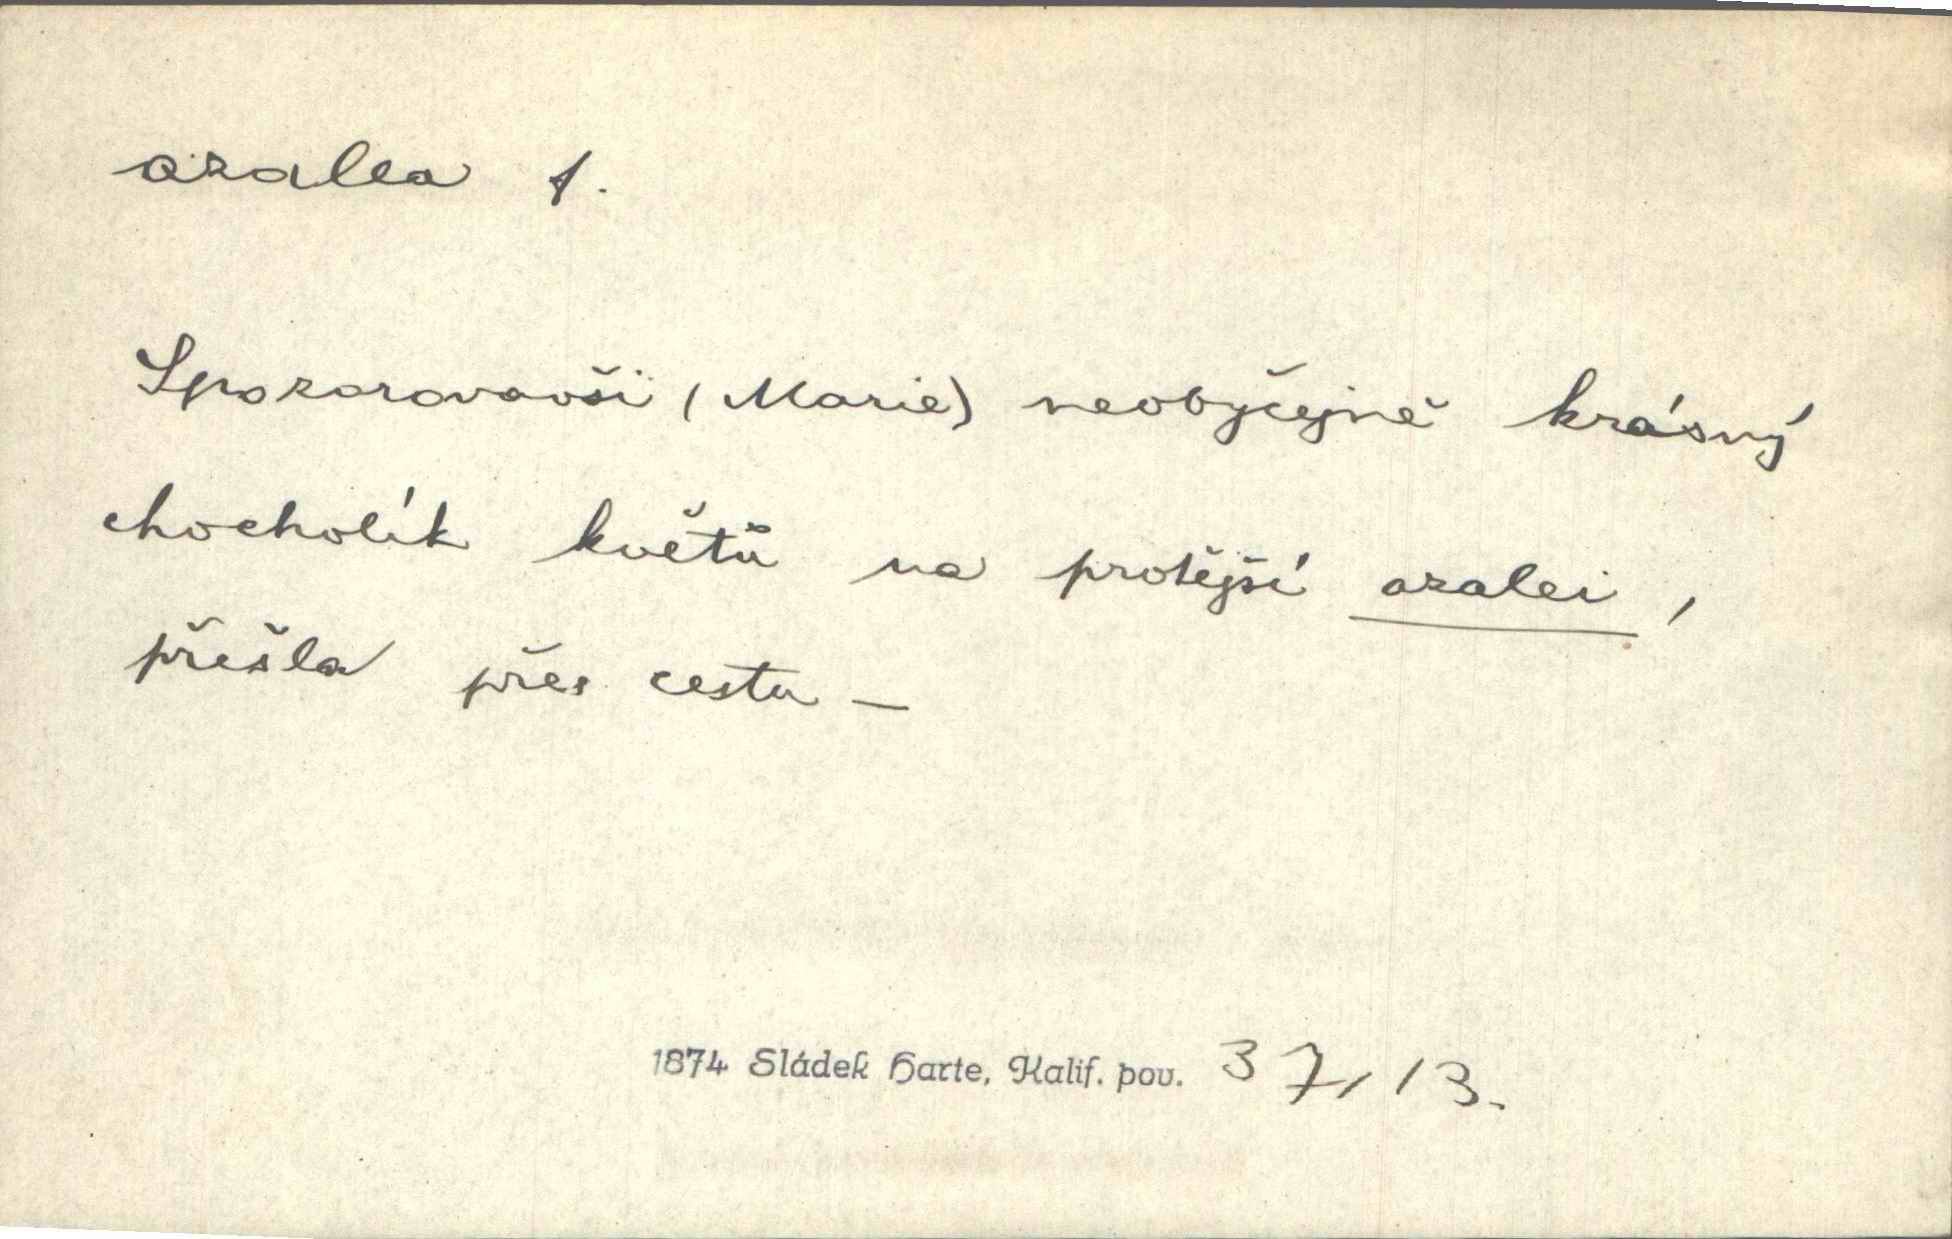 azalea f.
Spozorovavši (Marie) neobyčejně krásný
chocholík květů na protější azalei,
přešla přes cestu –
1874 Sládek Harte, Kalif. pov. 37, 13.